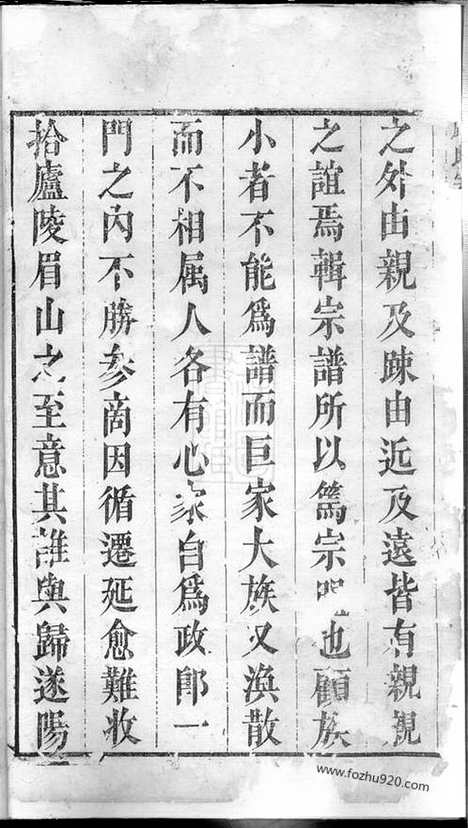 之外由親及疎由近及遠皆有親親
之誼焉輯宗譜所以篤宗也顧族
小者不能爲譜而巨家大族又渙散
而不相属人各有心家自爲政卽一
門之內不勝参商因循遷延愈難收
拾廬陵眉山之至意其誰與歸遂陽
www.fozhu920.com